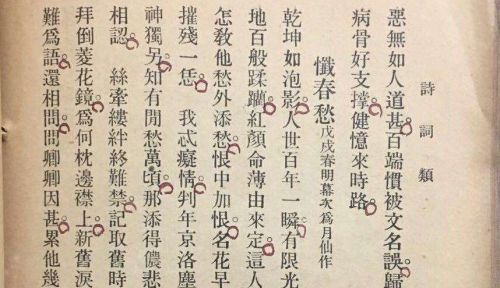 詩詞類
惡無如人道甚百端慣被文名誤歸
病骨好支撐健憶來時路
懺春愁戊戌春明幕次爲月仙作
乾坤如泡影人世百年一瞬有限光
地百般蹂躪紅顏命薄由來定這人
怎敎他愁外添愁恨中加恨名花早
摧殘一恁　我忒癡情判年京洛塵
神獨另知有閒愁萬頃那添得儂悲
相認　絲牽縷絆終難禁記取舊時
拜倒菱花鏡爲何枕邊襟上新舊淚
難爲語還相問問卿卿因甚累他幾